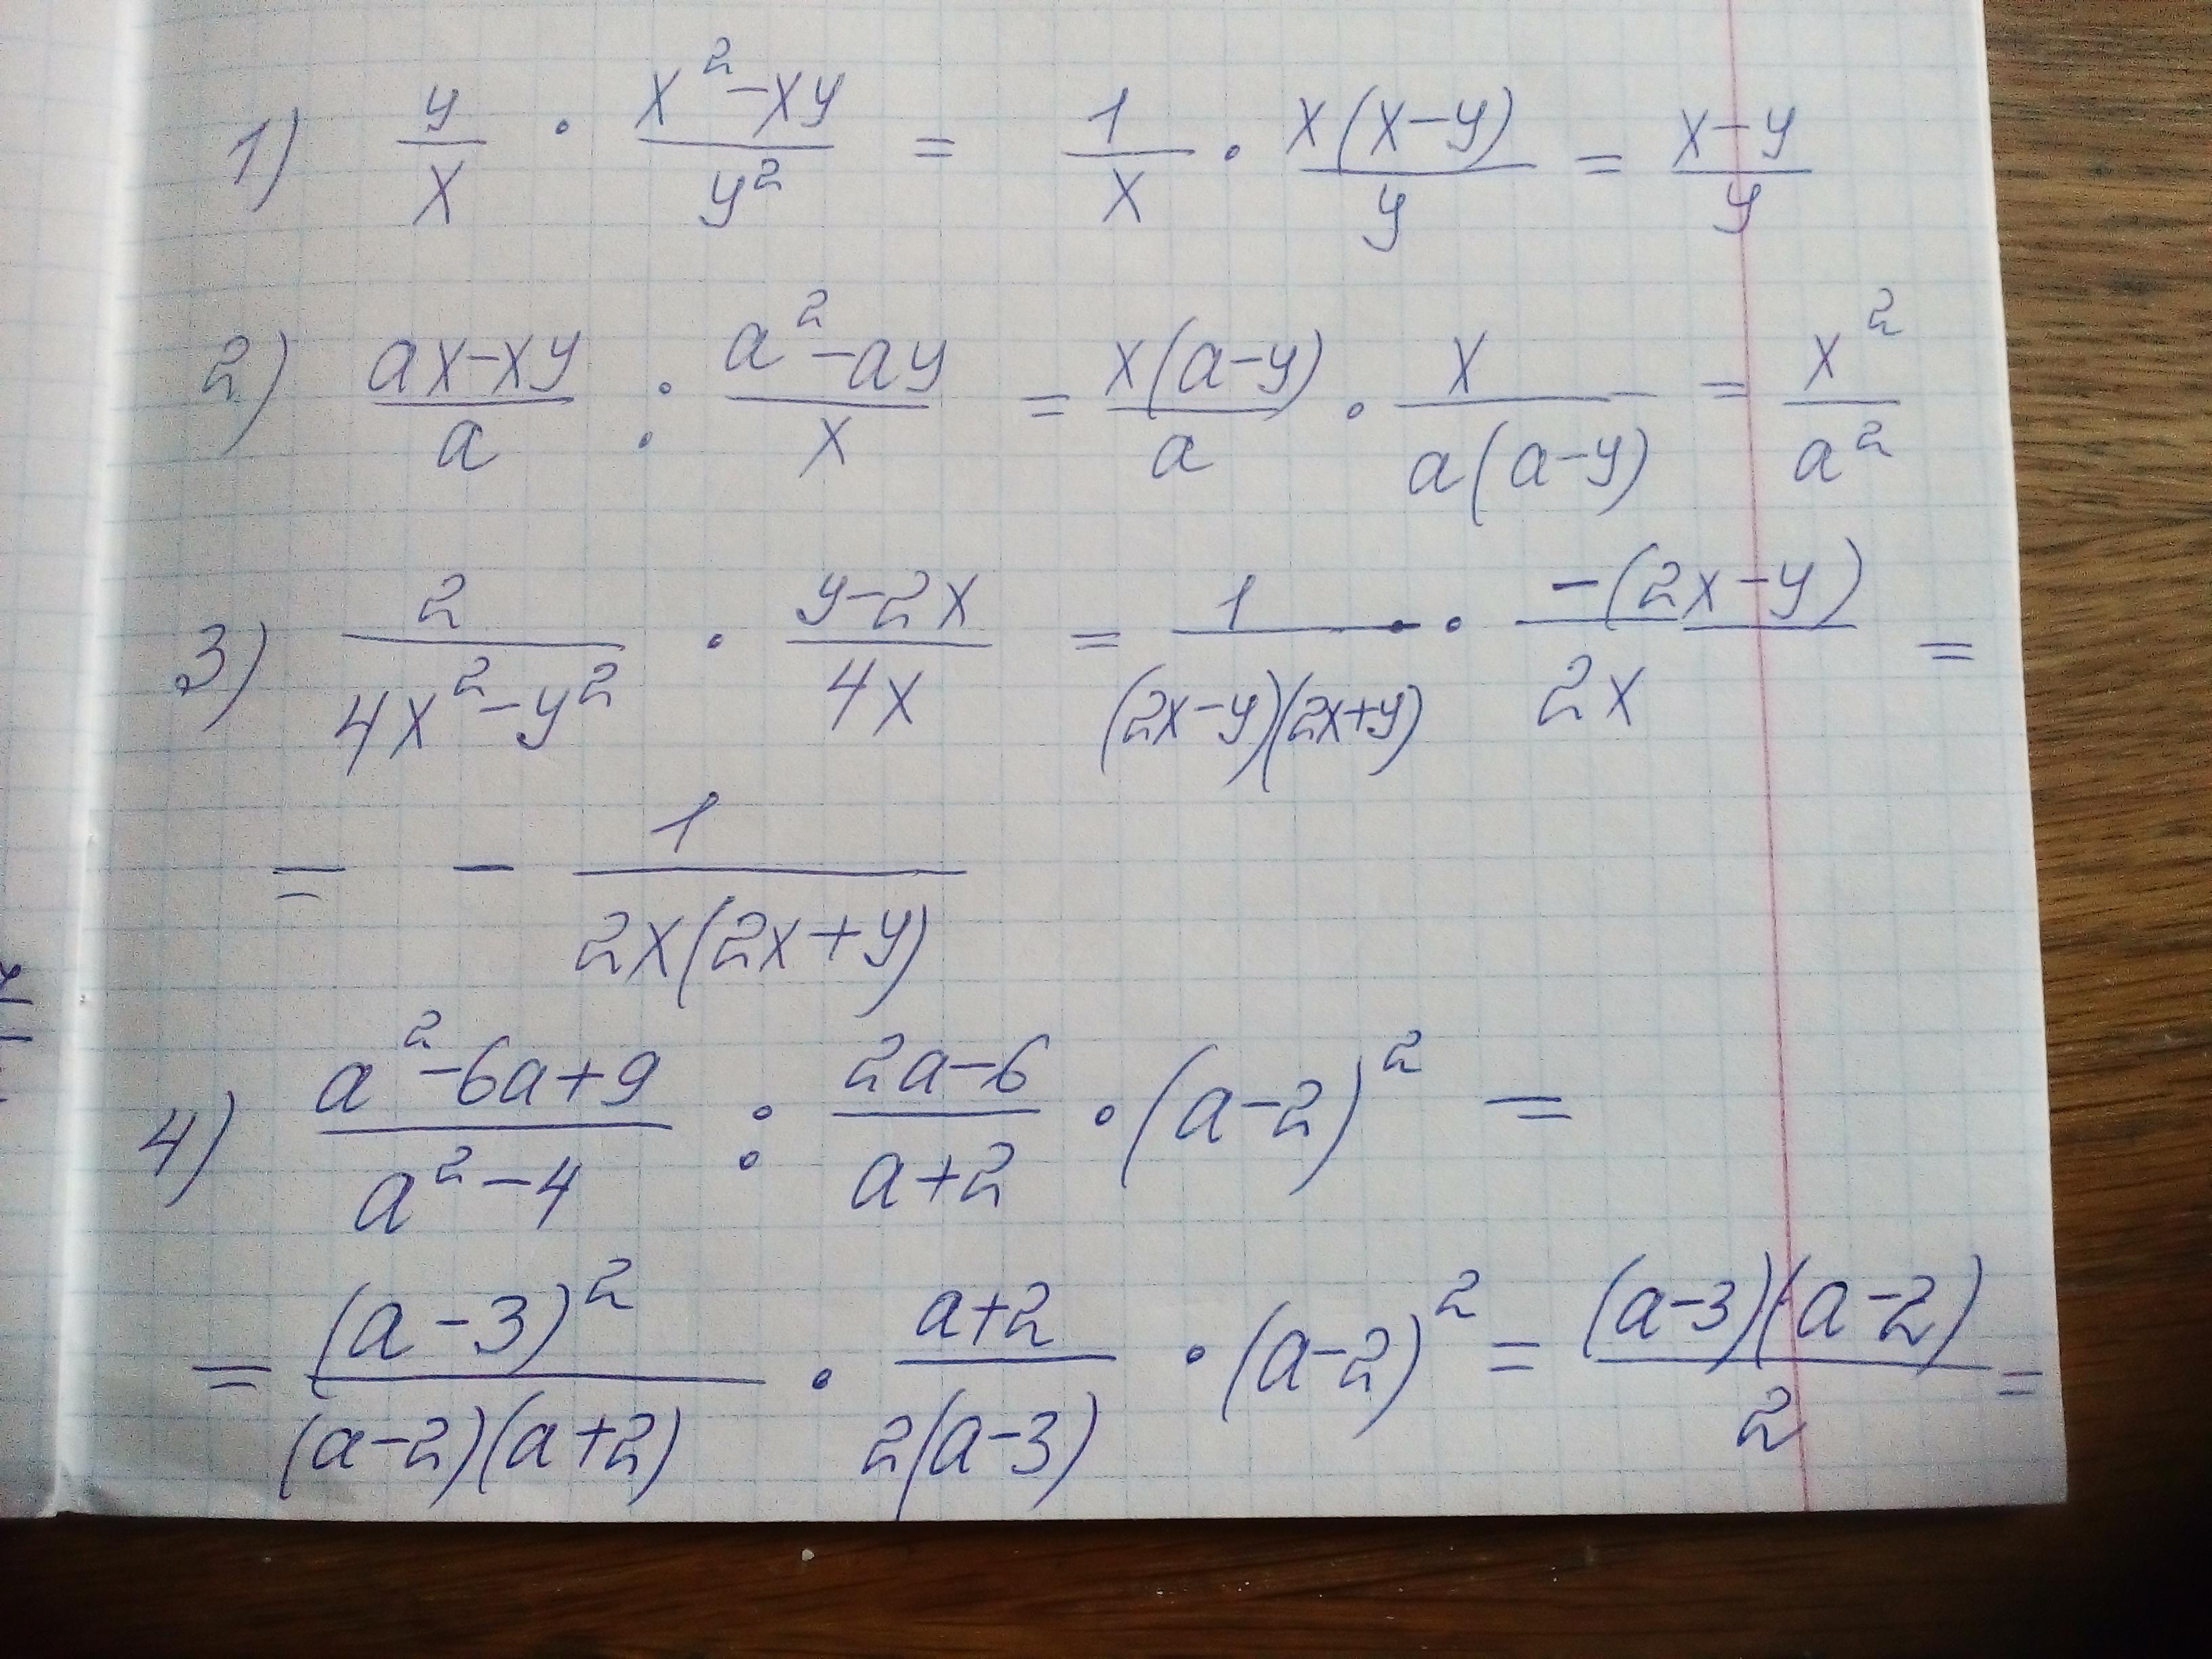 1) y/x · (x²-xy)/y² = 1/x · x(x-y)/y = (x-y)/y
2) (ax-xy)/a : (a²-ay)/x = x(a-y)/a · x/(a(a-y)) = x²/a²
3) 2/(4x²-y²) · (y-2x)/4x = 1/((2x-y)(2x+y)) · -(2x-y)/2x =
= - 1/(2x(2x+y))
4) (a²-6a+9)/(a²-4) : (2a-6)/(a+2) · (a-2)² =
= (a-3)²/((a-2)(a+2)) · (a+2)/(2(a-3)) · (a-2)² = (a-3)(a-2)/2 =